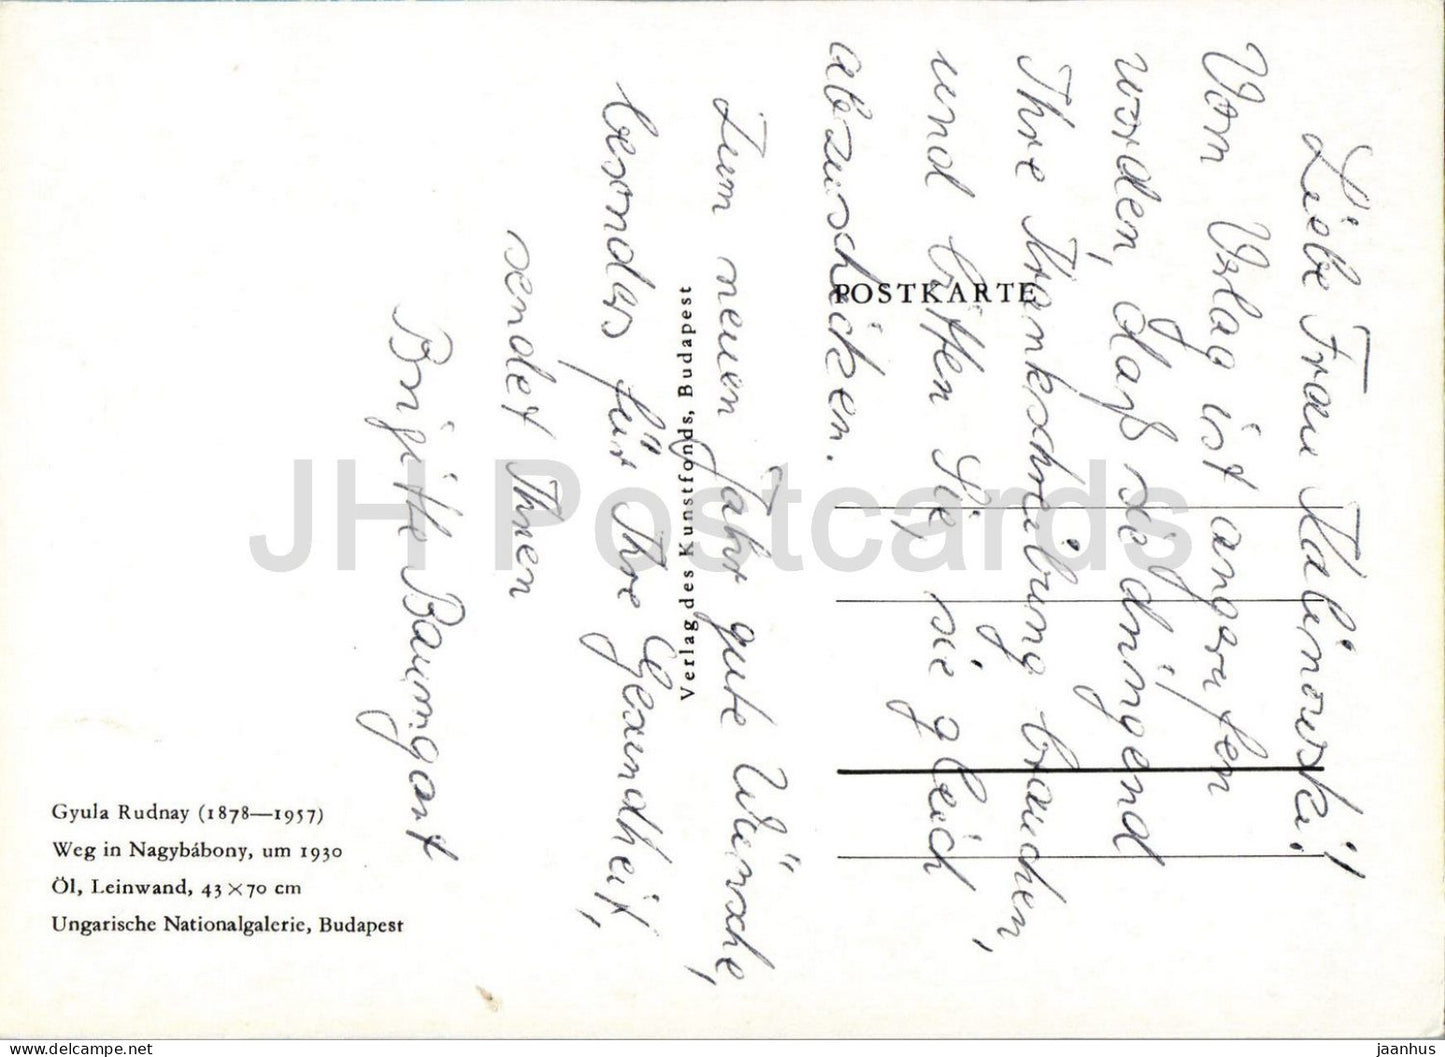 Liebe Frau Kalinowski!
Vom Verlag ist angerufen
worden, daß sie dringend
Ihre Krankschreibung brauchen,
und bitten Sie, sie gleich
abzuschicken.
Zum neuen Jahr gute Wünsche,
besonders für Ihre Gesundheit,
sendet Ihnen
Brigitte Baumgart
POSTKARTE
Verlag des Kunstfonds, Budapest
Gyula Rudnay (1878—1957)
Weg in Nagybábony, um 1930
Öl, Leinwand, 43×70 cm
Ungarische Nationalgalerie, Budapest
JH Postcards
www.delcampe.net
jaanhus